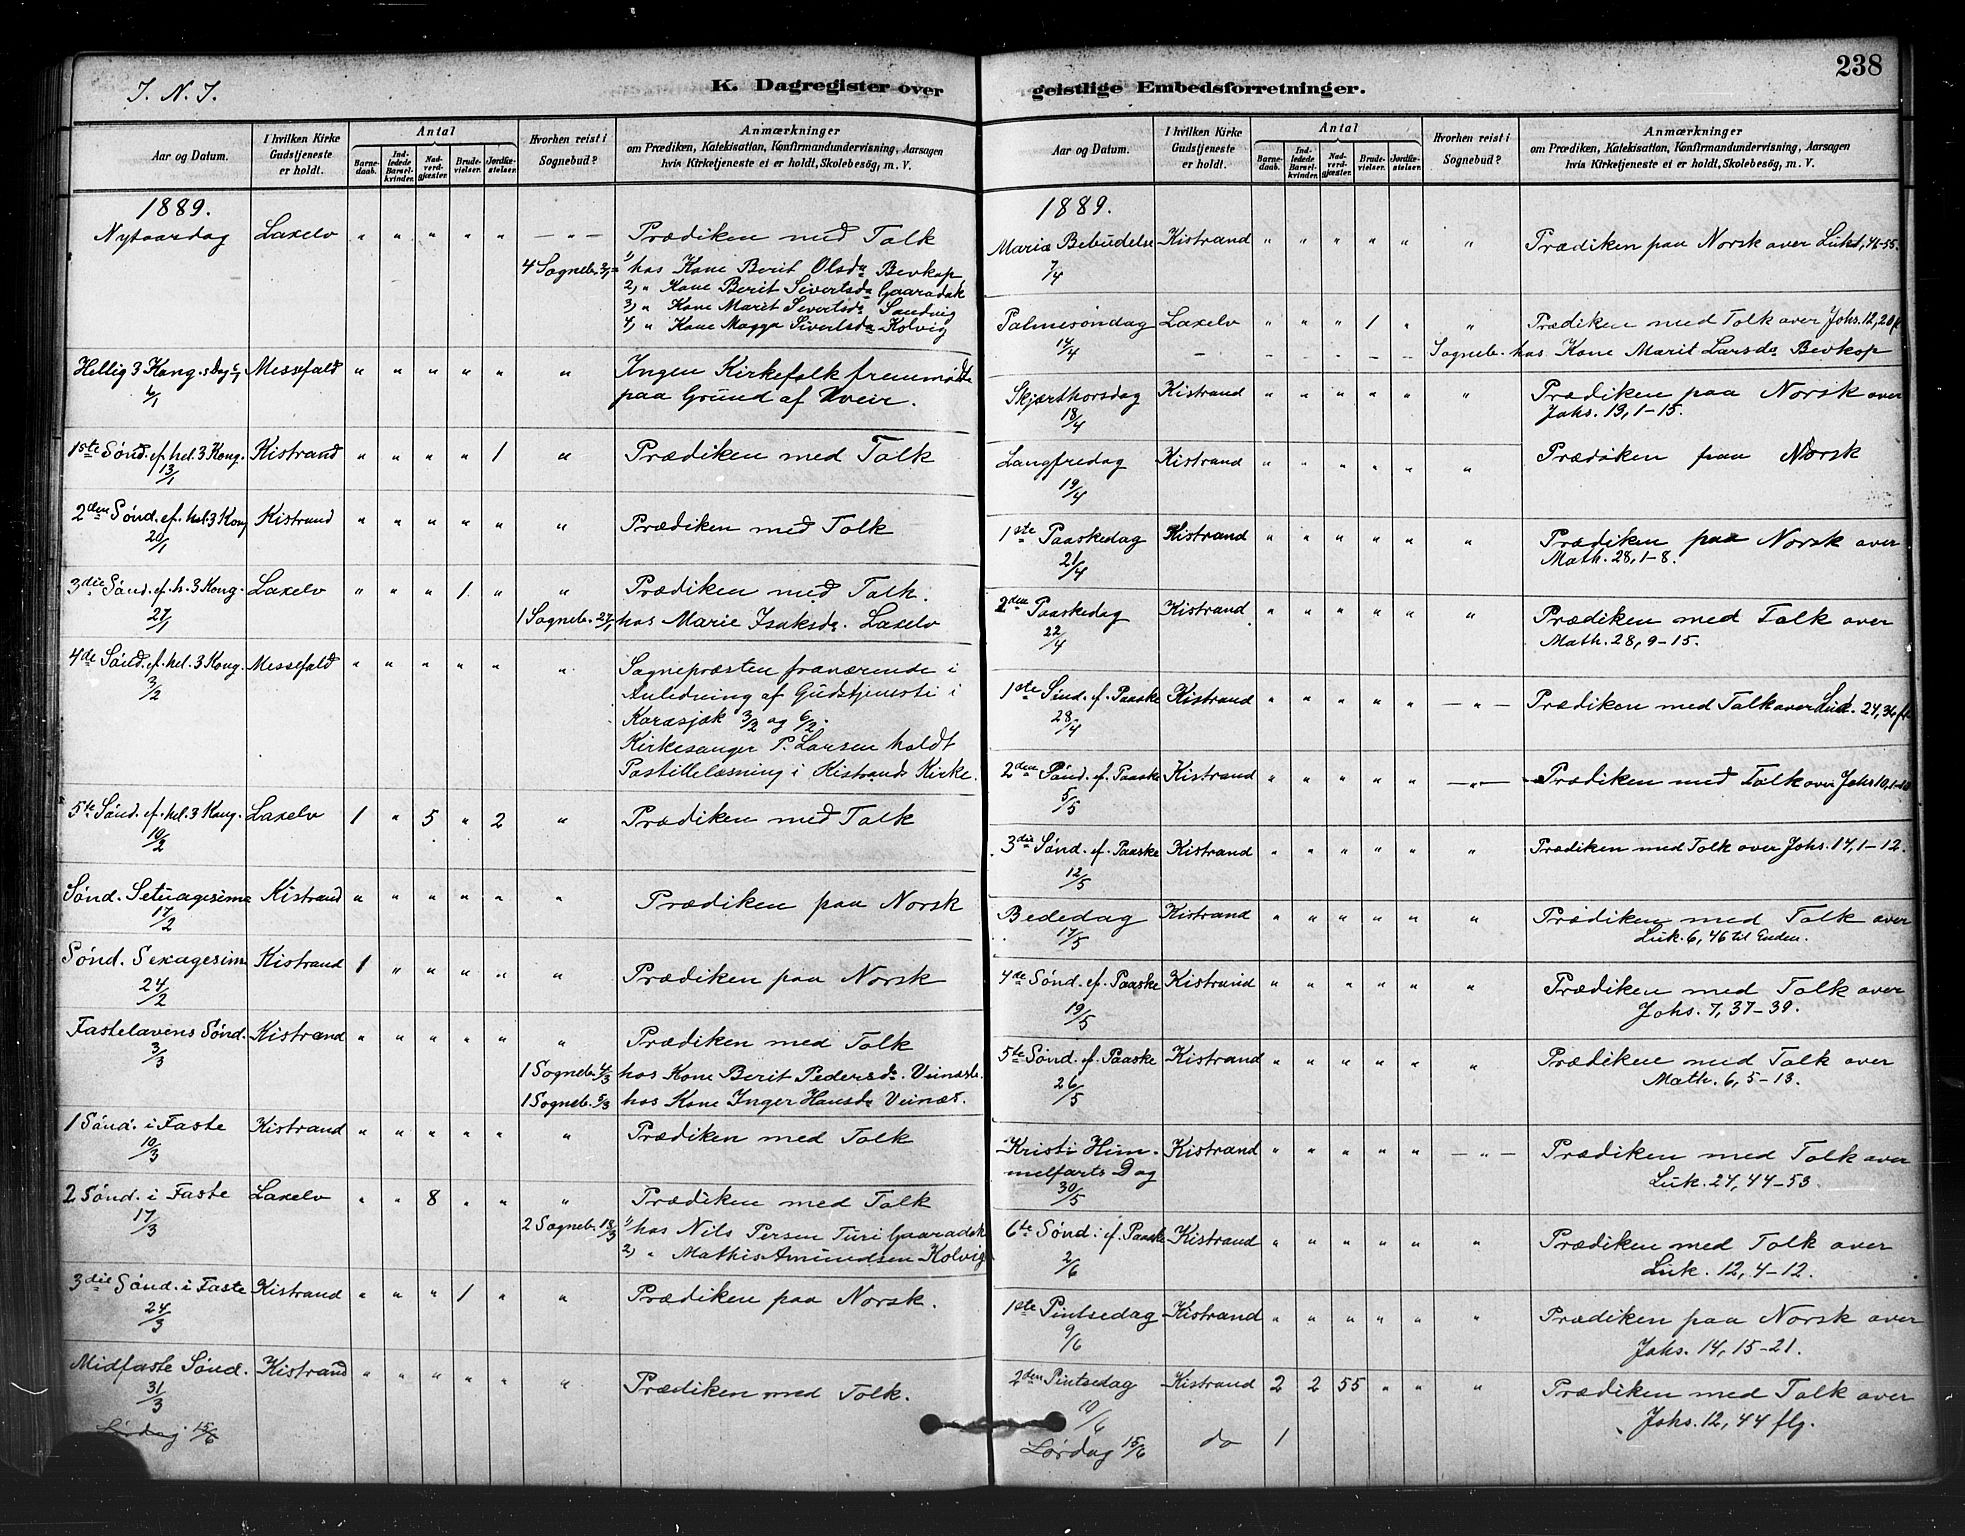 238
I. N. J.
K. Dagregister over geistlige Embedsforretninger.
Aar og Datum. I hvilken Kirke Gudstjeneste er holdt. Antal Barnedaab. Indledede Barselkvinder. Nadverdgjæster. Brudevielser. Jordfæstelser. Hvorhen reist i Sognebud? Anmærkninger om Prædiken, Katekisation, Konfirmandundervisning, Aarsagen hvis Kirketjeneste ei er holdt, Skolebesøg, m. V.
1889.
Nytaarsdag Laxelv " " " " " — " — Prædiken med Talk
4 Sogneb. 2/1 1/ hos Kone Berit Olsda Bevkop
2) " Kone Berit Sivertsda Gaaradak
3) " Kone Marit Sivertsda Sandvig
4) " Kone Magga Sivertsda Kolvig
Hellig 3 Kong.s Dag Messefald " " " " " " Ingen Kirkefolk fremmødte
6/1 paa Grund af Uveir.
1ste Sønd. ef. hel. 3 Kong. Kistrand " " " " 1 " Prædiken med Talk
13/1
2den Sønd. ef. hel. 3 Kong Kistrand " " " " " " Prædiken med Talk
20/1
3die Sønd. ef. h. 3 Kong. Laxelv " " " 1 " " Prædiken med Talk.
27/1 1 Sogneb. 27/1 hos Marie Isaksda. Laxelv
4de Sønd. ef. hel. 3 Kong. Messefald " " " " " " Sognepræsten fraværende i
3/2 Anledning af Gudstjeneste i
Karasjok 3/2 og 6/2.
Kirkesanger P. Larsen holdt
Postillelæsning i Kistrands Kirke.
5te Sønd. ef. hel. 3 Kong. Laxelv 1 " 5 " 2 " Prædiken med Talk
10/2
Sønd. Setuagesima Kistrand " " " " " " Prædiken paa Norsk
17/2
Sønd. Sexagesima Kistrand 1 " " " " " Prædiken paa Norsk
24/2
Fastelavens Sønd. Kistrand " " " " " " Prædiken med Talk
3/3 1 Sogneb. 4/3 hos Kone Berit Pedersda. Veinæs.
1 Sogneb. 5/3 hos Kone Inger Hansda Veinæs.
1 Sønd. i Faste Kistrand " " " " " " Prædiken med Talk
10/3
2 Sønd. i Faste Laxelv " " 8 " " " Prædiken med Talk
17/3 2 Sogneb. 18/3 1/ hos Nils Persen Turi Gaaradak
2) " Mathis Amundsen Kolvig
3die Sønd. i Faste Kistrand " " " 1 " " Prædiken paa Norsk.
24/3
Midfaste Sønd. Kistrand " " " " " " Prædiken med Talk.
31/3
Lørdag 15/6
Aar og Datum. I hvilken Kirke Gudstjeneste er holdt. Antal Barnedaab. Indledede Barselkvinder. Nadverdgjæster. Brudevielser. Jordfæstelser. Hvorhen reist i Sognebud? Anmærkninger om Prædiken, Katekisation, Konfirmandundervisning, Aarsagen hvis Kirketjeneste ei er holdt, Skolebesøg, m. V.
1889.
Mariæ Bebudelse Kistrand " " " " " " Prædiken paa Norsk over Luk 1, 46-55.
7/4
Palmesøndag Laxelv " " " 1 " " Prædiken med Talk over Johs. 12, 20 f
14/4 – – – – – Sogneb. hos Kone Marit Larsda Bevkop
Skjærthorsdag Kistrand " " " " " " Prædiken paa Norsk over
18/4 Johs. 13, 1-15.
Langfredag Kistrand " " " " " " Prædiken paa Norsk
19/4
1ste Paaskedag Kistrand " " " " " " Prædiken paa Norsk over
21/4 Math. 28, 1-8.
2den Paaskedag Kistrand " " " " " " Prædiken med Talk over
22/4 Math. 28, 9-15.
1ste Sønd. ef. Paaske Kistrand " " " " " — " — Prædiken med Talk over Luk. 24, 36 ff
28/4
2den Sønd. ef. Paaske Kistrand " " " " " — " — Prædiken med Talk over Johs 10, 1-10
5/5
3die Sønd. ef. Paaske Kistrand " " " " " " Prædiken med Talk over Johs. 14, 1-12.
12/5
Bededag Kistrand " " " " " " Prædiken med Talk over
17/5 Luk. 6, 46 til Enden.
4de Sønd. ef. Paaske Kistrand " " " " " " Prædiken med Talk over
19/5 Johs. 7, 37-39.
5te Sønd. ef. Paaske Kistrand " " " " " " Prædiken med Talk over
26/5 Math. 6, 5-13.
Kristi Him- Kistrand " " " " " — " — Prædiken med Talk over
melfarts Dag Luk. 24, 44-53.
30/5
6te Sønd: ef. Paaske Kistrand " " " " " " Prædiken med Talk over
2/6 Luk. 12, 4-12.
1ste Pintsedag Kistrand " " " " " " Prædiken paa Norsk over
9/6 Johs. 14, 15-21.
2den Pintsedag Kistrand 2 2 55 " " " Prædiken med Talk over
10/6 Johs. 12, 44 flg.
Lørdag 15/6 do 1